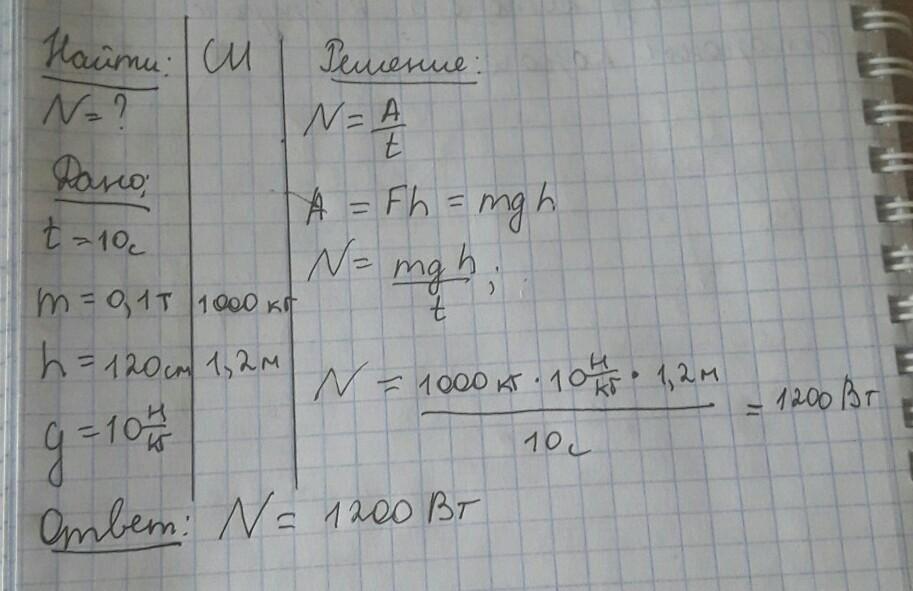 Найти:
N = ?
Дано:
t = 10с
m = 0,1т
h = 120см
g = 10 Н/кг
СИ
1000 кг
1,2 м
Решение:
N = A/t
A = Fh = mgh
N = mgh/t ;
N = 1000 кг · 10 Н/кг · 1,2 м / 10с = 1200 Вт
Ответ: N = 1200 Вт